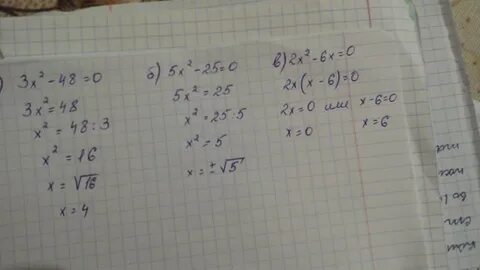 ) 3x² - 48 = 0
3x² = 48
x² = 48 : 3
x² = 16
x = √16
x = 4
б) 5x² - 25 = 0
5x² = 25
x² = 25 : 5
x² = 5
x = ± √5
в) 2x² - 6x = 0
2x(x - 6) = 0
2x = 0 или x - 6 = 0
x = 0 x = 6